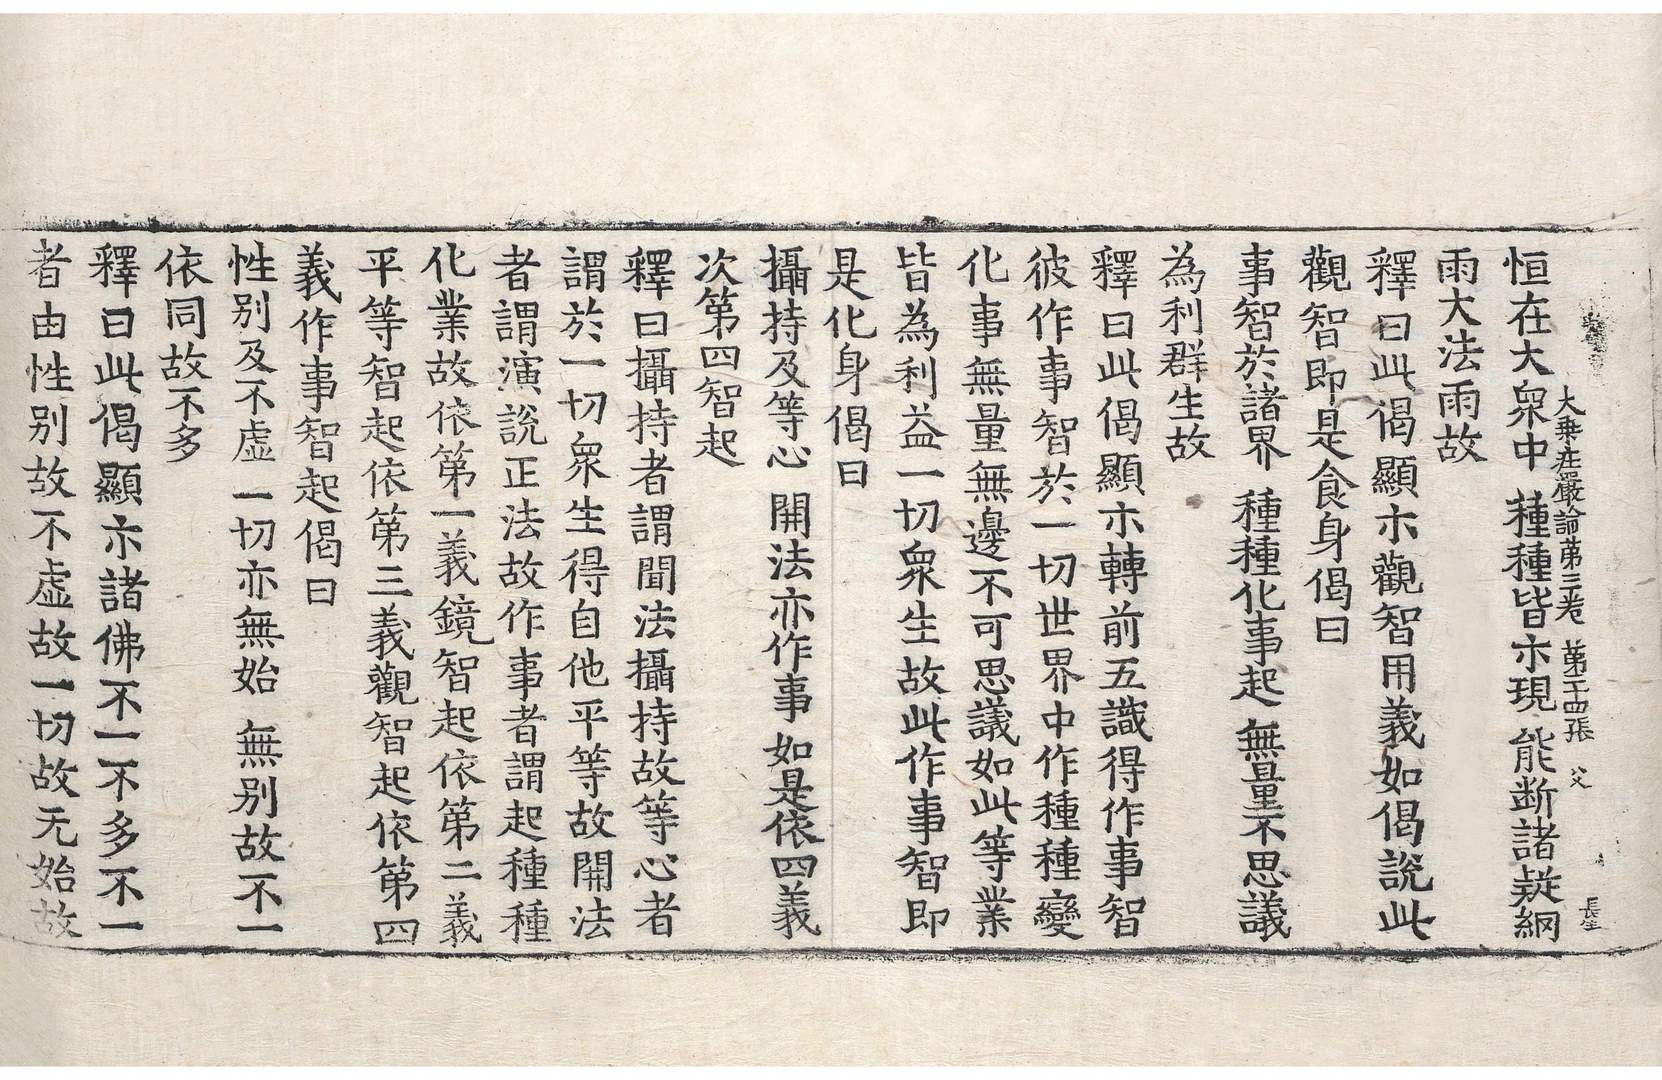 大乗在嚴論苐三卷 苐二十四張 父 長生
恒在大衆中 種種皆示現 能断諸疑網
雨大法雨故
釋曰此偈顯示觀智用義如偈說此
觀智即是食身偈曰
事智於諸界 種種化事起 無量不思議
為利群生故
釋曰此偈顯示轉前五識得作事智
彼作事智於一切世界中作種種變
化事無量無邊不可思議如此等業
皆為利益一切衆生故此作事智即
是化身偈曰
攝持及等心 開法亦作事 如是依四義
次第四智起
釋曰攝持者謂聞法攝持故等心者
謂於一切衆生得自他平等故開法
者謂演說正法故作事者謂起種種
化業故依第一義鏡智起依第二義
平等智起依第三義觀智起依第四
義作事智起偈曰
性別及不虛 一切亦無始 無別故不一
依同故不多
釋曰此偈顯示諸佛不一不多不一
者由性別故不虛故一切故无始故